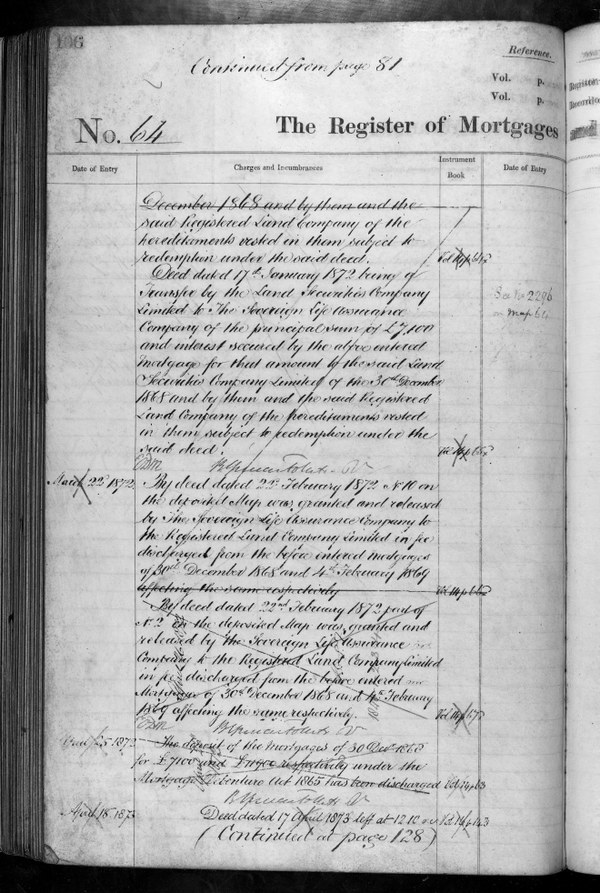 106
Continued from page 81
Reference.
Vol. p.
Vol. p.
No. 64
The Register of Mortgages
Date of Entry
Charges and Incumbrances
Instrument
Book
Date of Entry
December 1868 and by them and the
said Registered Land Company of the
heredit​aments vested in them subject to
redemption under the said deed.
Deed dated 17th January 1872 being a
Transfer by the Land Securities Company
Limited to The Sovereign Life Assurance
Company of the principal sum of £7,100
and interest secured by the above entered
Mortgage for that amount to the said Land
Securities Company Limited of the 30th December
1868 and by them and the said Registered
Land Company of the hereditaments vested
in them subject to redemption under the
said deed.
See No 2296
on Map 64
March 22d 1872
By deed dated 22nd February 1872 No 10 on
the deposited Map was granted and released
by The Sovereign Life Assurance Company to
the Registered Land Company Limited in fee
discharged from the before entered Mortgages
of 30th December 1868 and 4th February 1869
affecting the same respectively
By deed dated 22nd February 1872 part of
No 2 on the deposited Map was granted and
released by the Sovereign Life Assurance
Company to the Registered Land Company Limited
in fee discharged from the before entered
Mortgages of 30th December 1868 and 4th February
1869 affecting the same respectively.
The deposit of the Mortgages of 30 Decr 1868
for £7100 and respectively under the
Mortgage Debenture Act 1865 has been discharged
April 18 1873
Deed dated 17 April 1873 left at 12.10
(Continued at page 128)